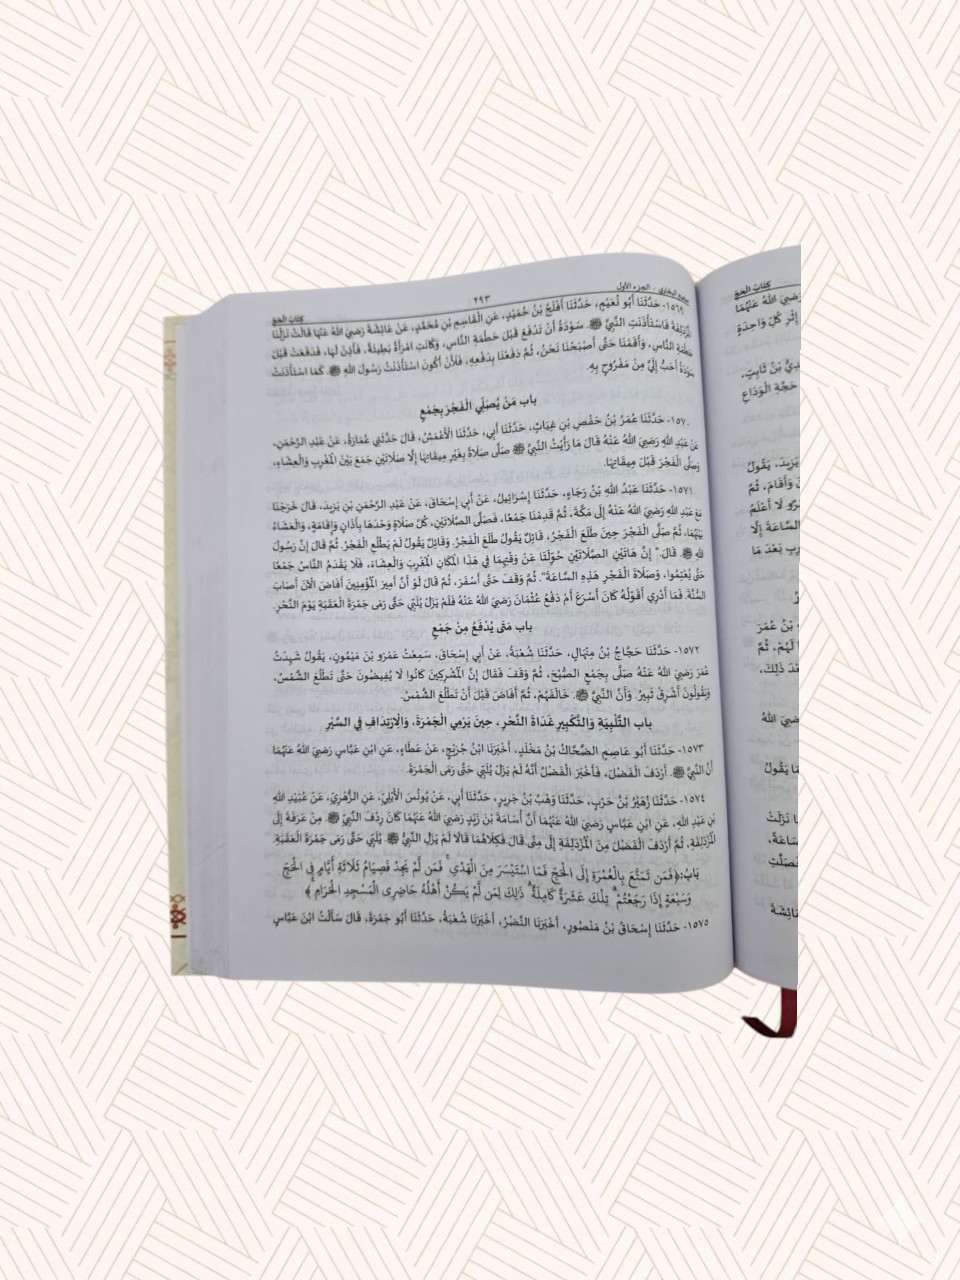 صحيح البخاري - الجزء الأول ٢٩٣ كتاب الحج
١٥٦٩- حَدَّثَنَا أَبُو نُعَيْمٍ، حَدَّثَنَا أَفْلَحُ بْنُ حُمَيْدٍ، عَنِ الْقَاسِمِ بْنِ مُحَمَّدٍ، عَنْ عَائِشَةَ رَضِيَ اللهُ عَنْهَا قَالَتْ نَزَلْنَا
الْمُزْدَلِفَةَ فَاسْتَأْذَنَتِ النَّبِيَّ ﷺ سَوْدَةُ أَنْ تَدْفَعَ قَبْلَ حَطْمَةِ النَّاسِ، وَكَانَتِ امْرَأَةً بَطِيئَةً، فَأَذِنَ لَهَا، فَدَفَعَتْ قَبْلَ
حَطْمَةِ النَّاسِ، وَأَقَمْنَا حَتَّى أَصْبَحْنَا نَحْنُ، ثُمَّ دَفَعْنَا بِدَفْعِهِ، فَلَأَنْ أَكُونَ اسْتَأْذَنْتُ رَسُولَ اللهِ ﷺ. كَمَا اسْتَأْذَنَتْ
سَوْدَةُ أَحَبُّ إِلَيَّ مِنْ مَفْرُوحٍ بِهِ.
باب مَنْ يُصَلِّي الْفَجْرَ بِجَمْعٍ
١٥٧٠- حَدَّثَنَا عُمَرُ بْنُ حَفْصِ بْنِ غِيَاثٍ، حَدَّثَنَا أَبِي، حَدَّثَنَا الْأَعْمَشُ، قَالَ حَدَّثَنِي عُمَارَةُ، عَنْ عَبْدِ الرَّحْمَنِ،
عَنْ عَبْدِ اللهِ رَضِيَ اللهُ عَنْهُ قَالَ مَا رَأَيْتُ النَّبِيَّ ﷺ صَلَّى صَلَاةً بِغَيْرِ مِيقَاتِهَا إِلَّا صَلَاتَيْنِ جَمَعَ بَيْنَ الْمَغْرِبِ وَالْعِشَاءِ،
وَصَلَّى الْفَجْرَ قَبْلَ مِيقَاتِهَا.
١٥٧١- حَدَّثَنَا عَبْدُ اللهِ بْنُ رَجَاءٍ، حَدَّثَنَا إِسْرَائِيلُ، عَنْ أَبِي إِسْحَاقَ، عَنْ عَبْدِ الرَّحْمَنِ بْنِ يَزِيدَ، قَالَ خَرَجْنَا
مَعَ عَبْدِ اللهِ رَضِيَ اللهُ عَنْهُ إِلَى مَكَّةَ، ثُمَّ قَدِمْنَا جَمْعًا، فَصَلَّى الصَّلَاتَيْنِ، كُلَّ صَلَاةٍ وَحْدَهَا بِأَذَانٍ وَإِقَامَةٍ، وَالْعَشَاءُ
بَيْنَهُمَا، ثُمَّ صَلَّى الْفَجْرَ حِينَ طَلَعَ الْفَجْرُ، قَائِلٌ يَقُولُ طَلَعَ الْفَجْرُ. وَقَائِلٌ يَقُولُ لَمْ يَطْلُعِ الْفَجْرُ. ثُمَّ قَالَ إِنَّ رَسُولَ
اللهِ ﷺ. قَالَ." إِنَّ هَاتَيْنِ الصَّلَاتَيْنِ حُوِّلَتَا عَنْ وَقْتِهِمَا فِي هَذَا الْمَكَانِ الْمَغْرِبَ وَالْعِشَاءَ، فَلَا يَقْدَمُ النَّاسُ جَمْعًا
حَتَّى يُعْتِمُوا، وَصَلَاةَ الْفَجْرِ هَذِهِ السَّاعَةَ". ثُمَّ وَقَفَ حَتَّى أَسْفَرَ، ثُمَّ قَالَ لَوْ أَنَّ أَمِيرَ الْمُؤْمِنِينَ أَفَاضَ الْآنَ أَصَابَ
السُّنَّةَ. فَمَا أَدْرِي أَقَوْلُهُ كَانَ أَسْرَعَ أَمْ دَفْعُ عُثْمَانَ رَضِيَ اللهُ عَنْهُ فَلَمْ يَزَلْ يُلَبِّي حَتَّى رَمَى جَمْرَةَ الْعَقَبَةِ يَوْمَ النَّحْرِ.
باب مَتَى يُدْفَعُ مِنْ جَمْعٍ
١٥٧٢- حَدَّثَنَا حَجَّاجُ بْنُ مِنْهَالٍ، حَدَّثَنَا شُعْبَةُ، عَنْ أَبِي إِسْحَاقَ، سَمِعْتُ عَمْرَو بْنَ مَيْمُونٍ، يَقُولُ شَهِدْتُ
عُمَرَ رَضِيَ اللهُ عَنْهُ صَلَّى بِجَمْعٍ الصُّبْحَ، ثُمَّ وَقَفَ فَقَالَ إِنَّ الْمُشْرِكِينَ كَانُوا لَا يُفِيضُونَ حَتَّى تَطْلُعَ الشَّمْسُ،
وَيَقُولُونَ أَشْرِقْ ثَبِيرُ. وَأَنَّ النَّبِيَّ ﷺ. خَالَفَهُمْ، ثُمَّ أَفَاضَ قَبْلَ أَنْ تَطْلُعَ الشَّمْسُ.
باب التَّلْبِيَةِ وَالتَّكْبِيرِ غَدَاةَ النَّحْرِ، حِينَ يَرْمِي الْجَمْرَةَ، وَالِارْتِدَافِ فِي السَّيْرِ
١٥٧٣- حَدَّثَنَا أَبُو عَاصِمٍ الضَّحَّاكُ بْنُ مَخْلَدٍ، أَخْبَرَنَا ابْنُ جُرَيْجٍ، عَنْ عَطَاءٍ، عَنِ ابْنِ عَبَّاسٍ رَضِيَ اللهُ عَنْهُمَا
أَنَّ النَّبِيَّ ﷺ. أَرْدَفَ الْفَضْلَ، فَأَخْبَرَ الْفَضْلُ أَنَّهُ لَمْ يَزَلْ يُلَبِّي حَتَّى رَمَى الْجَمْرَةَ.
١٥٧٤- حَدَّثَنَا زُهَيْرُ بْنُ حَرْبٍ، حَدَّثَنَا وَهْبُ بْنُ جَرِيرٍ، حَدَّثَنَا أَبِي، عَنْ يُونُسَ الْأَيْلِيِّ، عَنِ الزُّهْرِيِّ، عَنْ عُبَيْدِ اللهِ
بْنِ عَبْدِ اللهِ، عَنِ ابْنِ عَبَّاسٍ رَضِيَ اللهُ عَنْهُمَا أَنَّ أُسَامَةَ بْنَ زَيْدٍ رَضِيَ اللهُ عَنْهُمَا كَانَ رِدْفَ النَّبِيِّ ﷺ. مِنْ عَرَفَةَ إِلَى
الْمُزْدَلِفَةِ، ثُمَّ أَرْدَفَ الْفَضْلَ مِنَ الْمُزْدَلِفَةِ إِلَى مِنًى. قَالَ فَكِلَاهُمَا قَالَا لَمْ يَزَلِ النَّبِيُّ ﷺ. يُلَبِّي، حَتَّى رَمَى جَمْرَةَ الْعَقَبَةِ.
بَابُ:﴿فَمَن تَمَتَّعَ بِالْعُمْرَةِ إِلَى الْحَجِّ فَمَا اسْتَيْسَرَ مِنَ الْهَدْيِ ۚ فَمَن لَّمْ يَجِدْ فَصِيَامُ ثَلَاثَةِ أَيَّامٍ فِي الْحَجِّ
وَسَبْعَةٍ إِذَا رَجَعْتُمْ ۗ تِلْكَ عَشَرَةٌ كَامِلَةٌ ۗ ذَٰلِكَ لِمَن لَّمْ يَكُنْ أَهْلُهُ حَاضِرِي الْمَسْجِدِ الْحَرَامِ ﴾
١٥٧٥- حَدَّثَنَا إِسْحَاقُ بْنُ مَنْصُورٍ، أَخْبَرَنَا النَّضْرُ، أَخْبَرَنَا شُعْبَةُ، حَدَّثَنَا أَبُو جَمْرَةَ، قَالَ سَأَلْتُ ابْنَ عَبَّاسٍ
كتاب الحج
رَضِيَ اللهُ عَنْهُمَا
إِثْرِ كُلِّ وَاحِدَةٍ
بْنُ ثَابِتٍ،
حَجَّةِ الْوَدَاعِ
يَزِيدَ، يَقُولُ
وَأَقَامَ، ثُمَّ
لَا أَعْلَمُ
السَّاعَةَ إِلَّا
بَعْدَ مَا
بْنُ عُمَرَ
لَهُمْ، ثُمَّ
ذَلِكَ،
رَضِيَ اللهُ
يَقُولُ
نَزَلَتْ
سَاعَةً،
فَصَلَّتْ
عَائِشَةَ